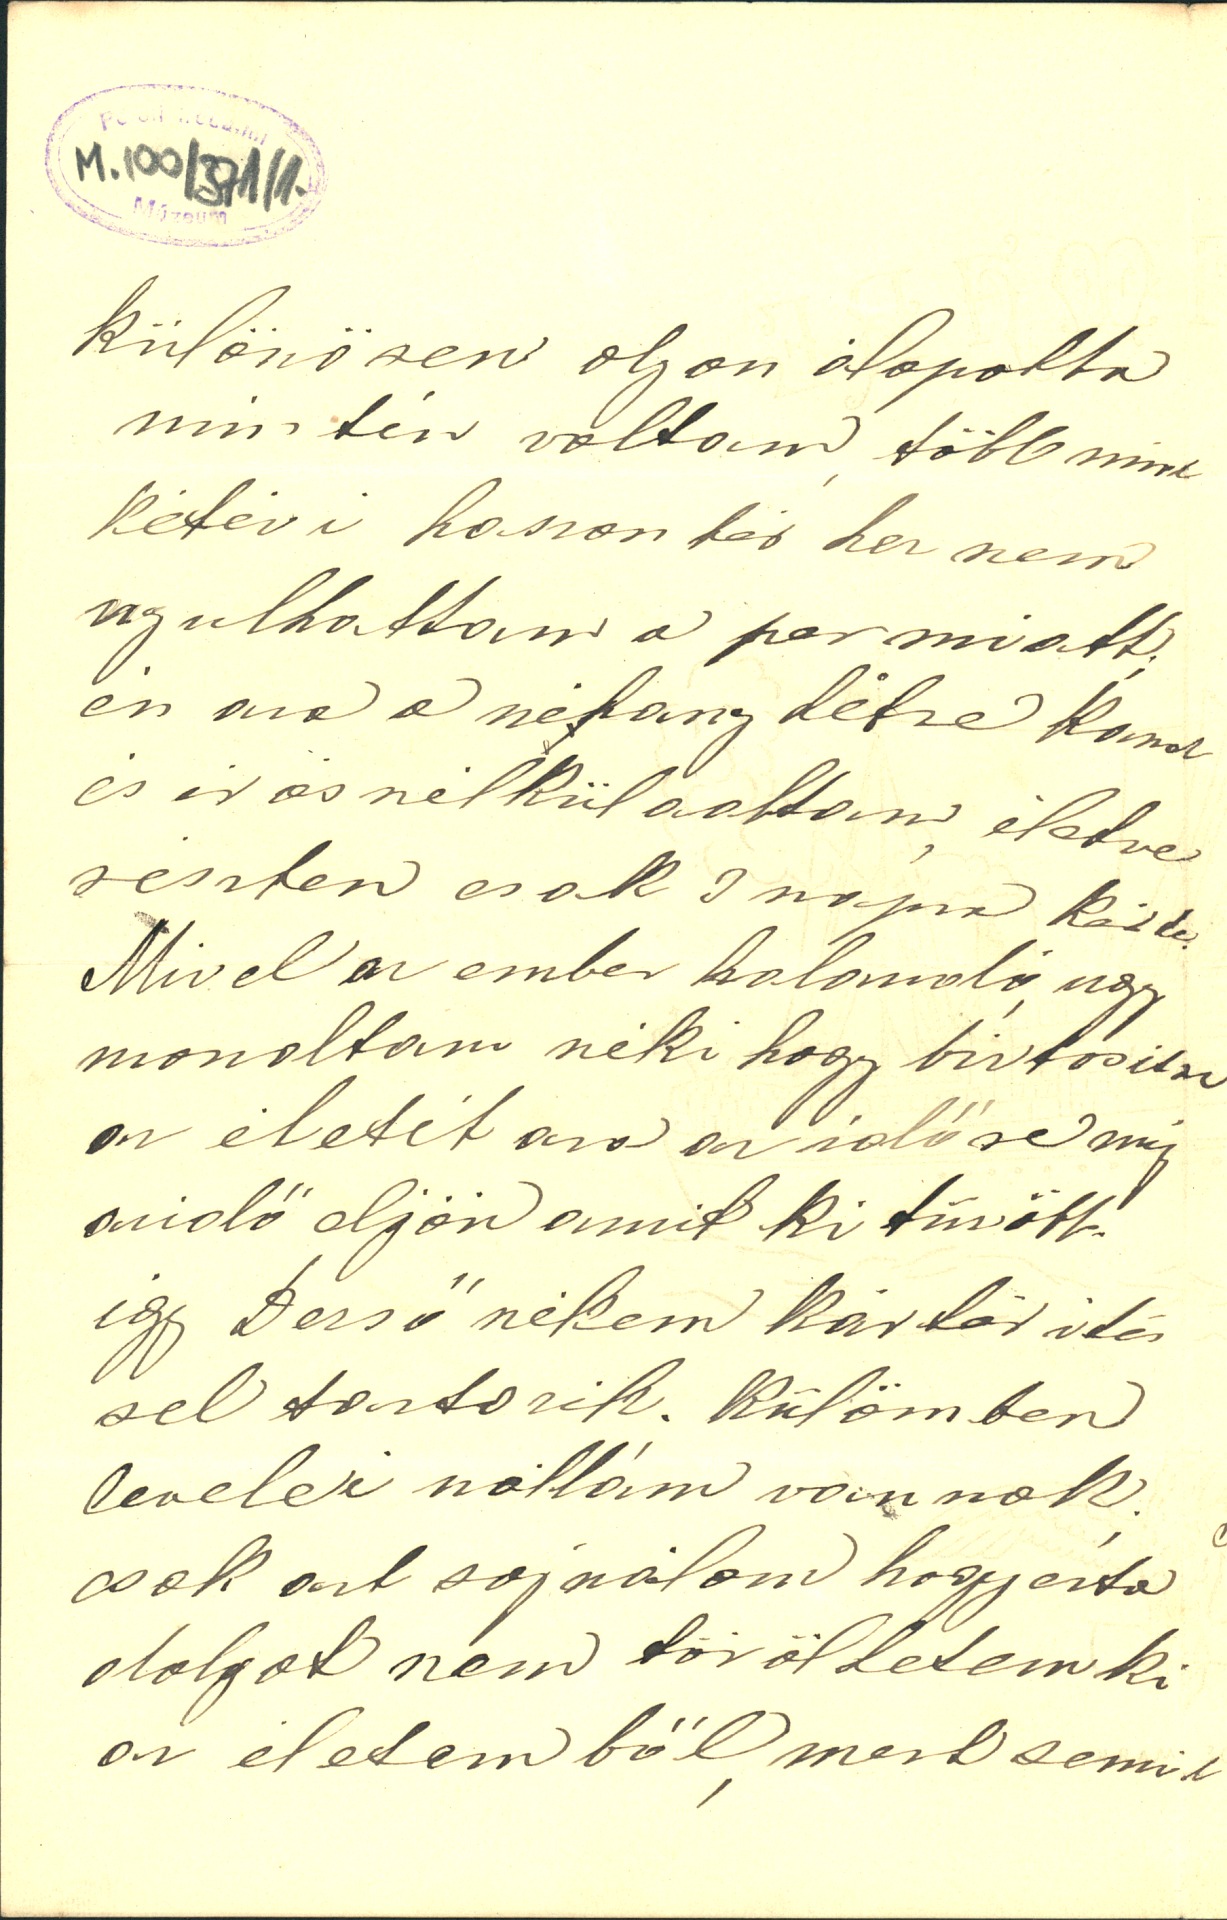 Petőfi Irodalmi
M.100/371/1.
Múzeum
különösen olyan álapotba
mintén voltam, több mint
kétévi haszontéshez nem
nyulhattam a per miatt,
én aza a néhany tétre
és irás nélkül adtam, életve
részten csak 3 napra kérte.
Mivel az ember halandó, ugy
monoltam néki hogy birtositsa
az életét aza az időre míg
azidő eljön amit ki tüzött.
igy Dezső nékem kártérités
sel tartozik. Külömben
levelei nállám vannak,
csak azt sajnálom hogy ezta
dolgot nem törölhetem ki
az életemből, mert semit